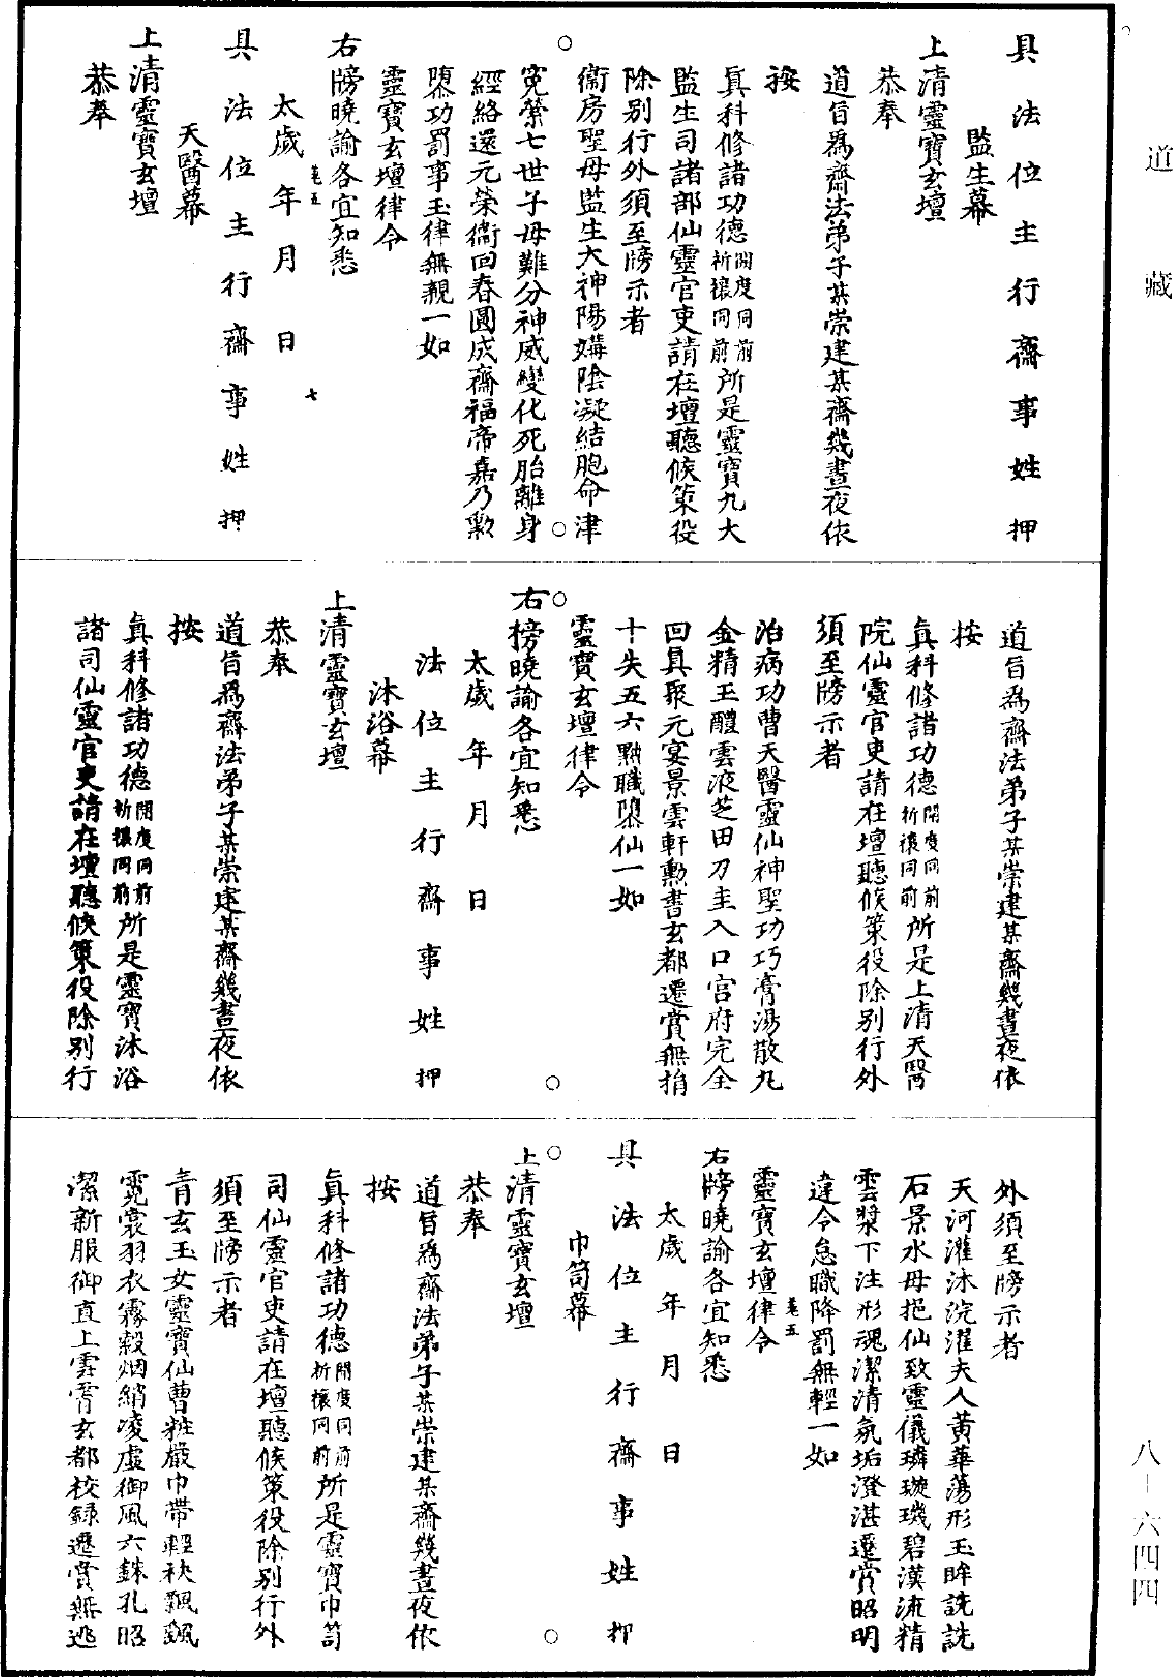 道藏
具法位主行齋事姓押
監生幕
上清靈寶玄壇
恭奉
道旨爲齋法弟子某崇建某齋幾晝夜依
按
眞科修諸功德開度同前祈禳同前所是靈寶九大
監生司諸部仙靈官吏請在壇聽候策役
除別行外須至牓示者
衞房聖母監生大神陽媾陰凝結胞命津
寃縈七世子母難分神威變化死胎離身
經絡還元榮衞回春圓成齋福帝嘉乃勲
隳功罰事玉律無親一如
靈寶玄壇律令
右牓曉諭各宜知悉
太歲年月日
卷五
七
具法位主行齋事姓押
天醫幕
上清靈寶玄壇
恭奉
道旨爲齋法弟子某崇建某齋幾晝夜依
按
眞科修諸功德開度同前祈禳同前所是上清天醫
院仙靈官吏請在壇聽候策役除別行外
須至牓示者
治病功曹天醫靈仙神聖功巧膏湯散丸
金精玉醴雲液芝田刀圭入口宫府完全
回眞聚元宴景雲軒勲書玄都遷賞無捐
十失五六黜職隳仙一如
靈寶玄壇律令
右榜曉諭各宜知悉
太歲年月日
法位主行齋事姓押
沐浴幕
上清靈寶玄壇
恭奉
道旨爲齋法弟子某崇建某齋幾晝夜依
按
眞科修諸功德開度同前祈禳同前所是靈寶沐浴
諸司仙靈官吏請在壇聽候策役除別行
外須至牓示者
天河灌沐浣濯夫人黄華蕩形玉眸詵詵
石景水母挹仙致靈儀璘璇璣碧漢流精
雲漿下注形魂潔清氛垢澄湛遷賞昭明
違令怠職降罰無輕一如
靈寶玄壇律令
卷五
右牓曉諭各宜知悉
太歲年月日
具法位主行齋事姓押
巾笥幕
上清靈寶玄壇
恭奉
道旨爲齋法弟子某崇建某齋幾晝夜依
按
眞科修諸功德開度同前祈禳同前所是靈寶巾笥
司仙靈官吏請在壇聽候策役除別行外
須至牓示者
青玄玉女靈寶仙曹粧嚴巾帶輕袂飄飄
霓裳羽衣霧縠烟綃凌虛御風六銖孔昭
潔新服御直上雲霄玄都校録遷賞無逃
八－六四四